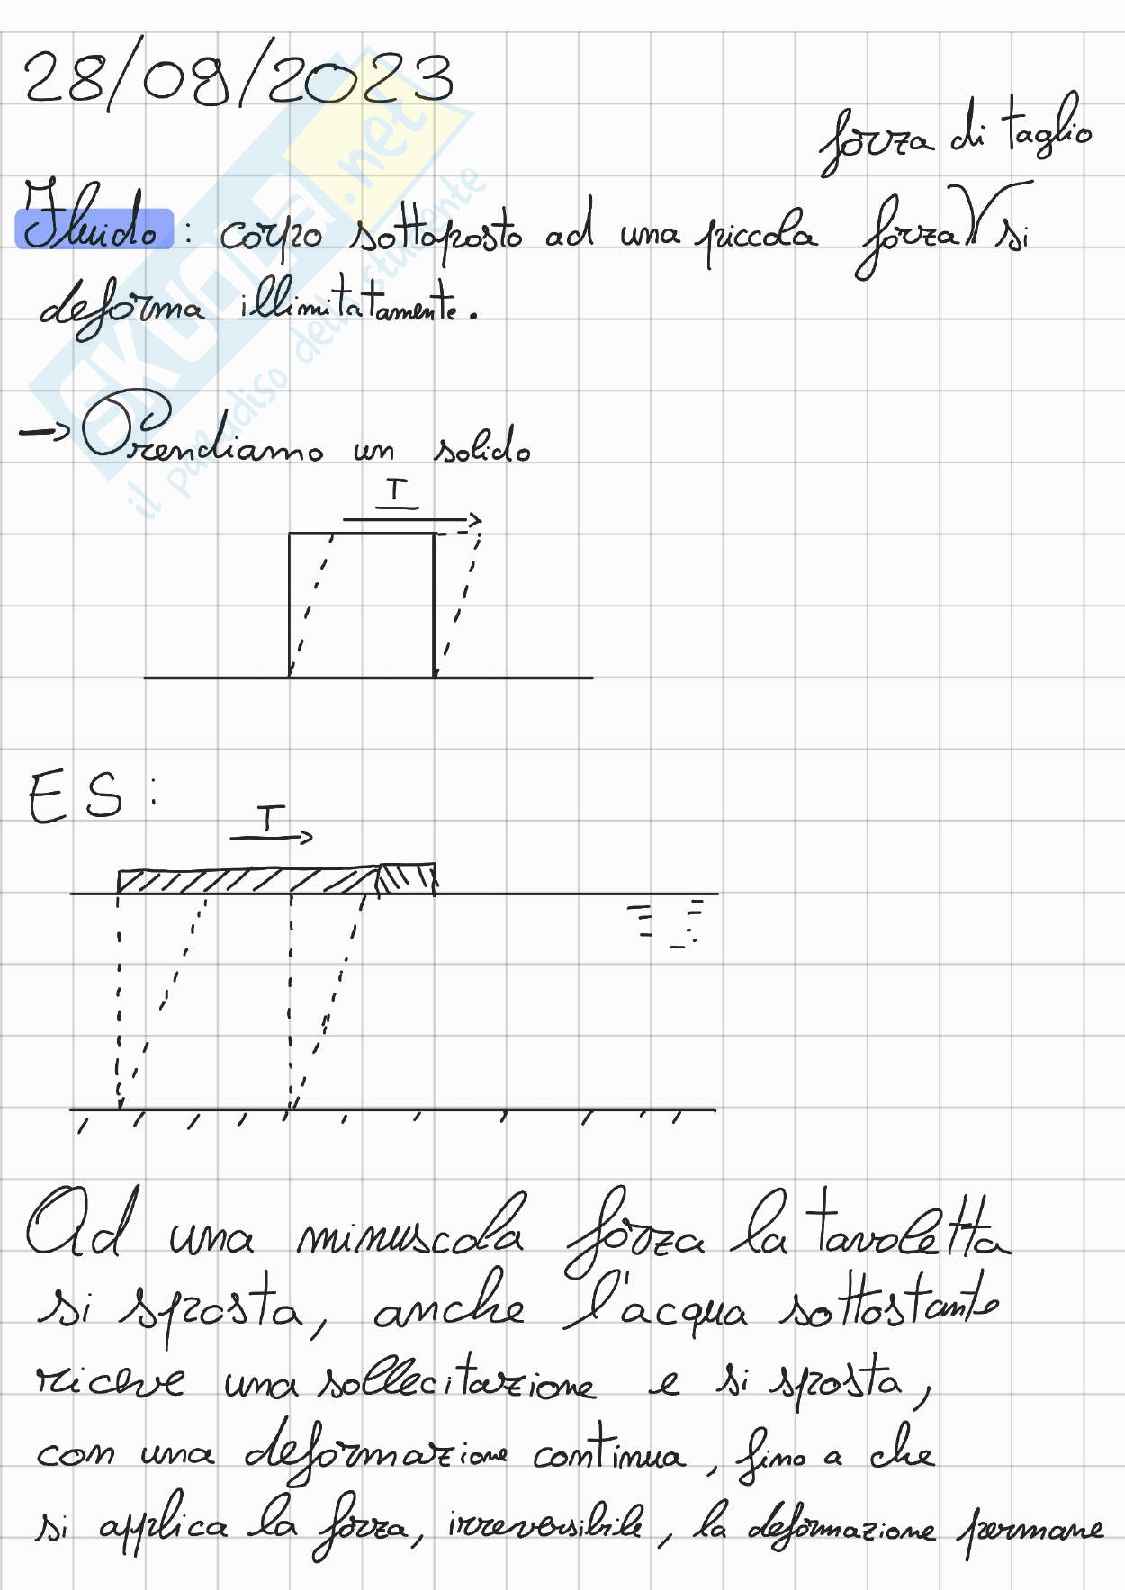 28/09/2023
forza di taglio
Fluido: corpo sottoposto ad una piccola forza V si
deforma illimitatamente.
→ Prendiamo un solido
T
ES:
T
Ad una minuscola forza la tavoletta
si sposta, anche l'acqua sottostante
riceve una sollecitazione e si sposta,
con una deformazione continua, fino a che
si applica la forza, irreversibile, la deformazione permane
SKUOLA.net
il paradiso dello studente